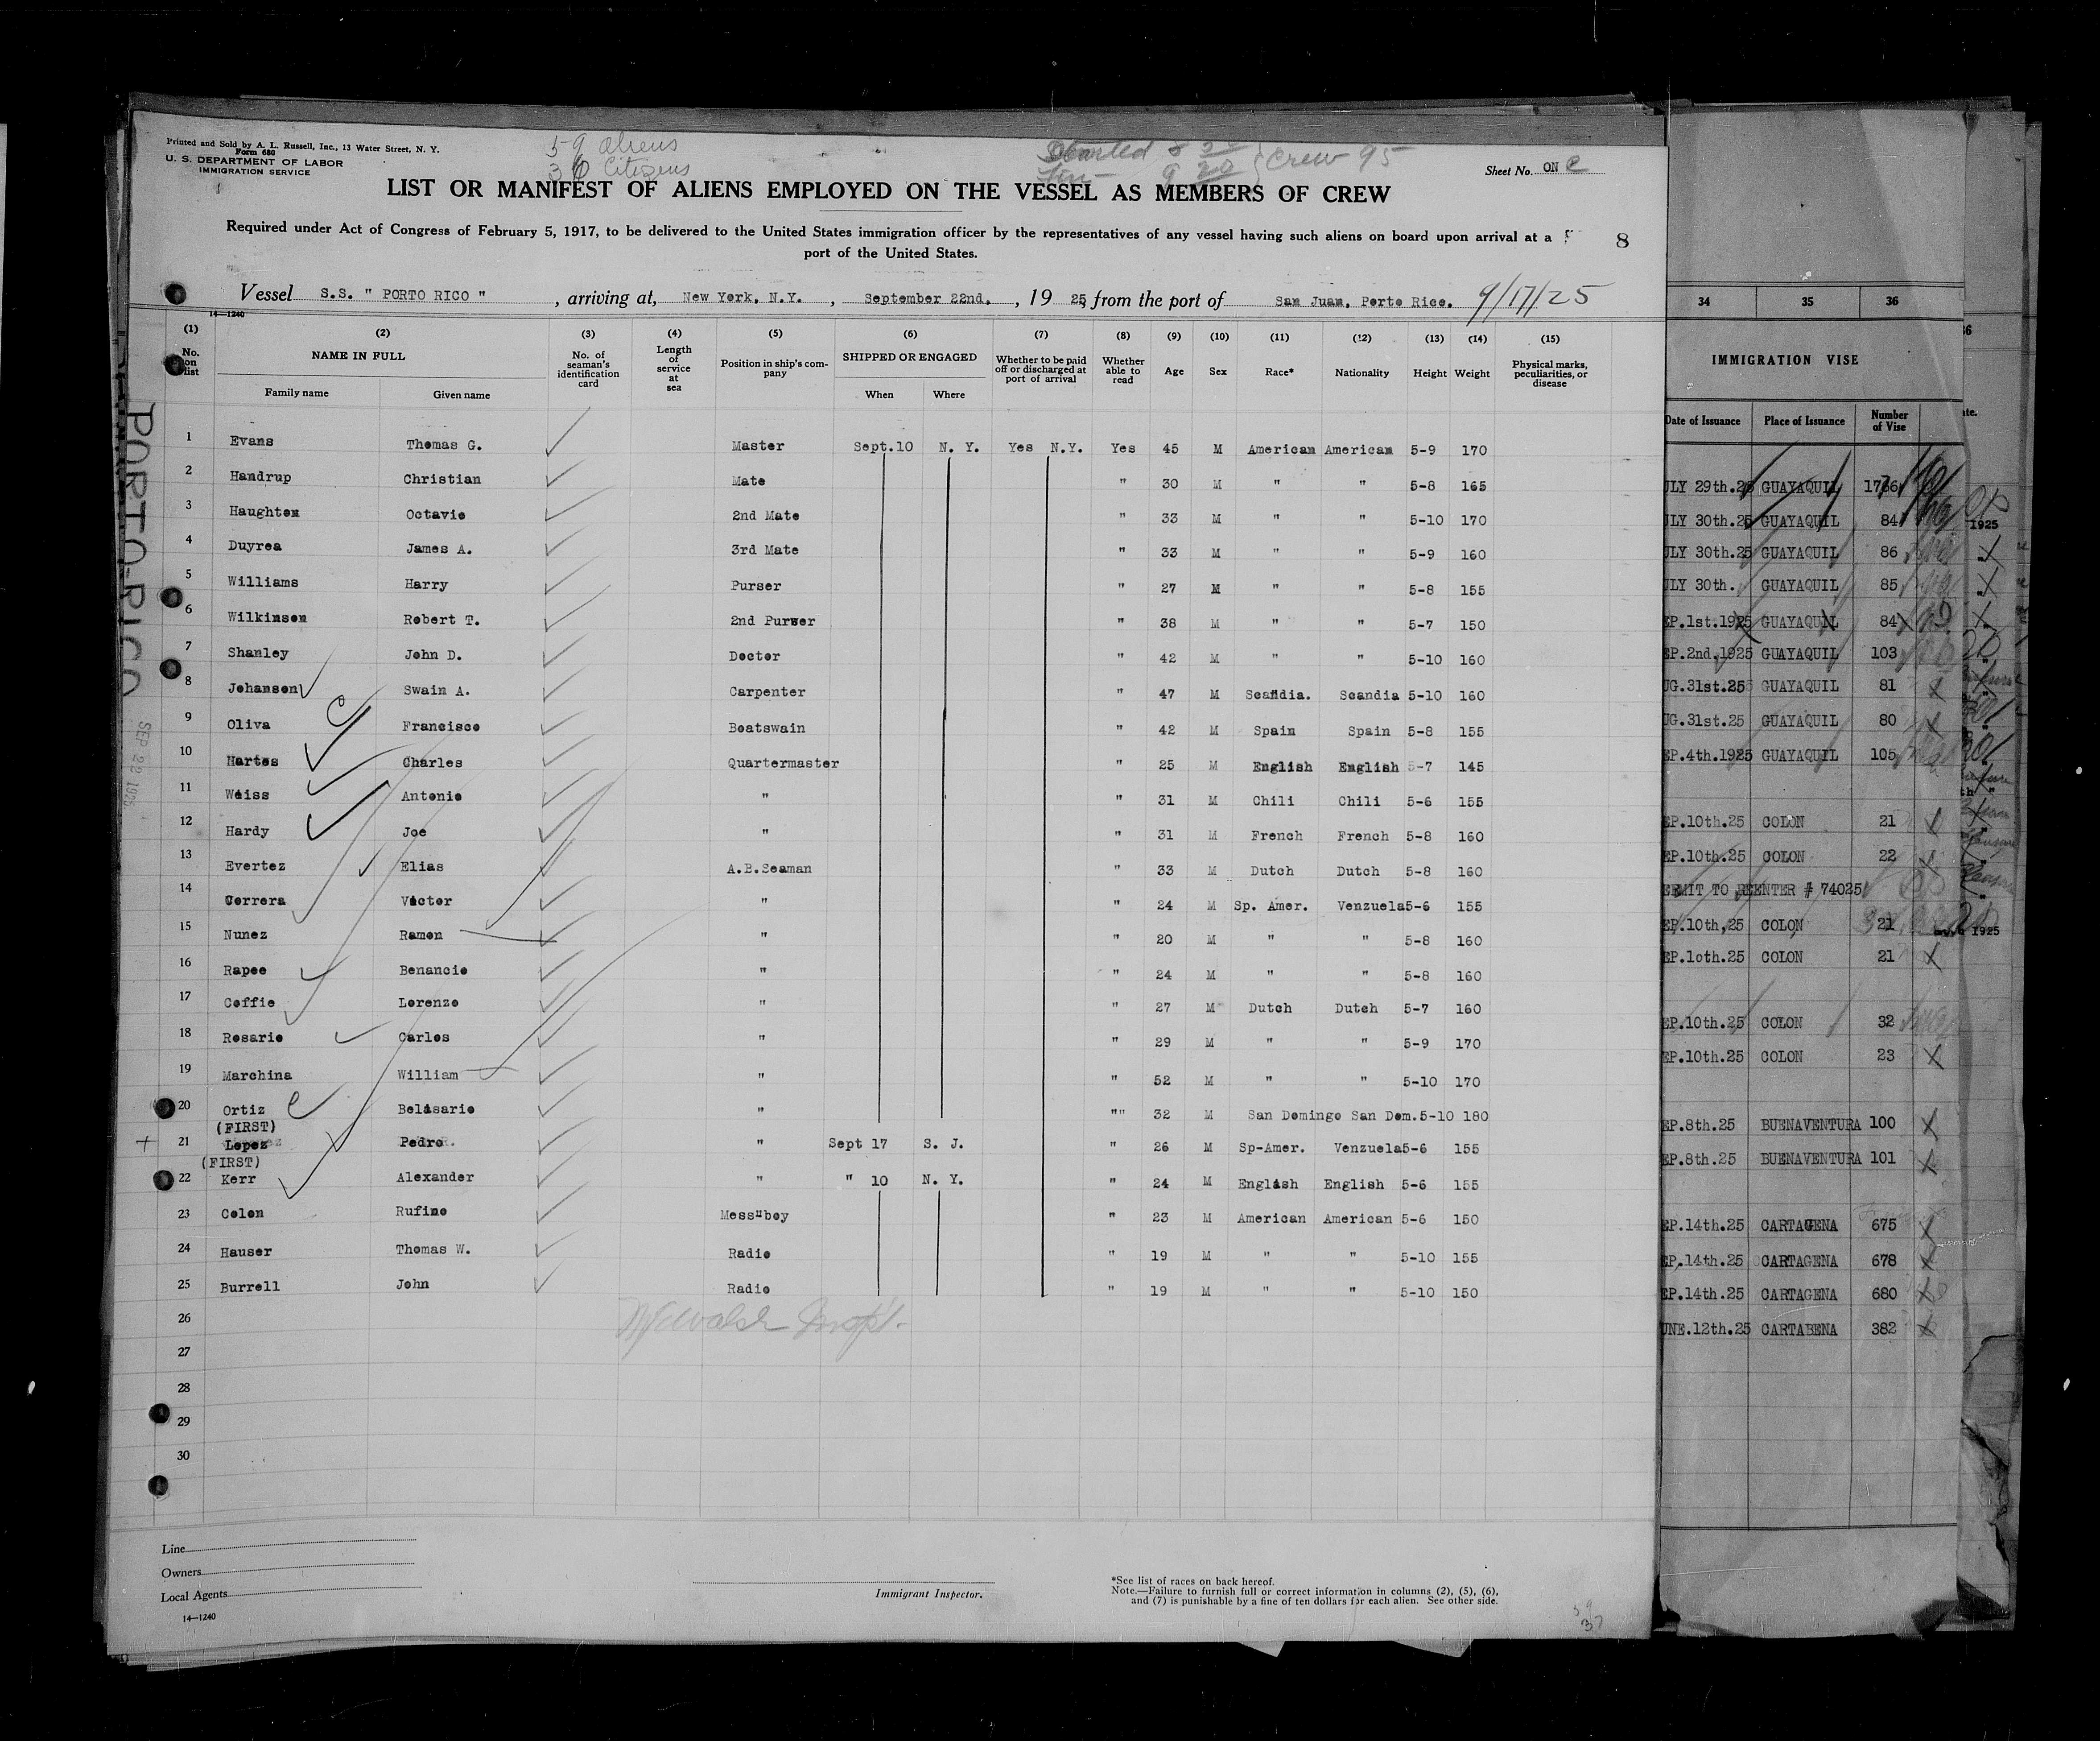 Printed and Sold by A. L. Russell, Inc., 13 Water Street, N. Y.
Form 680
U. S. DEPARTMENT OF LABOR
IMMIGRATION SERVICE
59 aliens
36 Citizens
Started
Crew 95
Sheet No. ONE
LIST OR MANIFEST OF ALIENS EMPLOYED ON THE VESSEL AS MEMBERS OF CREW
Required under Act of Congress of February 5, 1917, to be delivered to the United States immigration officer by the representatives of any vessel having such aliens on board upon arrival at a
port of the United States.
8
Vessel S.S. " PORTO RICO " , arriving at, New York, N.Y. , September 22nd. , 19 25, from the port of San Juan, Porto Rico. 9/17/25
14—1240
(1) (2) (3) (4) (5) (6) (7) (8) (9) (10) (11) (12) (13) (14) (15)
No. on list NAME IN FULL Family name Given name No. of seaman's identification card Length of service at sea Position in ship's company SHIPPED OR ENGAGED When Where Whether to be paid off or discharged at port of arrival Whether able to read Age Sex Race* Nationality Height Weight Physical marks, peculiarities, or disease
1 Evans Thomas G. Master Sept.10 N. Y. Yes N.Y. Yes 45 M American American 5-9 170
2 Handrup Christian Mate " 30 M " " 5-8 165
3 Haughton Octavio 2nd Mate " 33 M " " 5-10 170
4 Duyrea James A. 3rd Mate " 33 M " " 5-9 160
5 Williams Harry Purser " 27 M " " 5-8 155
6 Wilkinson Robert T. 2nd Purser " 38 M " " 5-7 150
7 Shanley John D. Doctor " 42 M " " 5-10 160
8 Johanson Swain A. Carpenter " 47 M Scandia. Scandia 5-10 160
9 Oliva Francisco Boatswain " 42 M Spain Spain 5-8 155
10 Hartos Charles Quartermaster " 25 M English English 5-7 145
11 Weiss Antonio " " 31 M Chili Chili 5-6 155
12 Hardy Joe " " 31 M French French 5-8 160
13 Evertez Elias A.B.Seaman " 33 M Dutch Dutch 5-8 160
14 Correra Victor " " 24 M Sp. Amer. Venzuela 5-6 155
15 Nunez Ramon " " 20 M " " 5-8 160
16 Rapee Benancio " " 24 M " " 5-8 160
17 Coffie Lorenzo " " 27 M Dutch Dutch 5-7 160
18 Rosario Carlos " " 29 M " " 5-9 170
19 Marchina William " " 52 M " " 5-10 170
20 Ortiz Belisario " "" 32 M San Domingo San Dom. 5-10 180
(FIRST)
21 Lopez Pedro " Sept 17 S. J. " 26 M Sp-Amer. Venzuela 5-6 155
(FIRST)
22 Kerr Alexander " " 10 N. Y. " 24 M English English 5-6 155
23 Colon Rufino Mess"boy " 23 M American American 5-6 150
24 Hauser Thomas W. Radio " 19 M " " 5-10 155
25 Burrell John Radio " 19 M " " 5-10 150
26
27
28
29
30
Line
Owners
Local Agents
14—1240
Immigrant Inspector.
*See list of races on back hereof.
Note.—Failure to furnish full or correct information in columns (2), (5), (6),
and (7) is punishable by a fine of ten dollars for each alien. See other side.
PORTO-RICO
SEP 22 1925
34 35 36
IMMIGRATION VISE
Date of Issuance Place of Issuance Number of Vise
LY 29th.25 GUAYAQUIL 1766
LY 30th.25 GUAYAQUIL 84
LY 30th.25 GUAYAQUIL 86
LY 30th. GUAYAQUIL 85
EP.1st.1925 GUAYAQUIL 84
EP.2nd.1925 GUAYAQUIL 103
UG.31st.25 GUAYAQUIL 81
UG.31st.25 GUAYAQUIL 80
EP.4th.1925 GUAYAQUIL 105
EP.10th.25 COLON 21
EP.10th.25 COLON 22
ERMIT TO REENTER # 74025
EP.10th,25 COLON 21
EP.10th.25 COLON 21
EP.10th.25 COLON 32
EP.10th.25 COLON 23
EP.8th.25 BUENAVENTURA 100
EP.8th.25 BUENAVENTURA 101
EP.14th.25 CARTAGENA 675
EP.14th.25 CARTAGENA 678
EP.14th.25 CARTAGENA 680
UNE.12th.25 CARTABENA 382
1925
1925